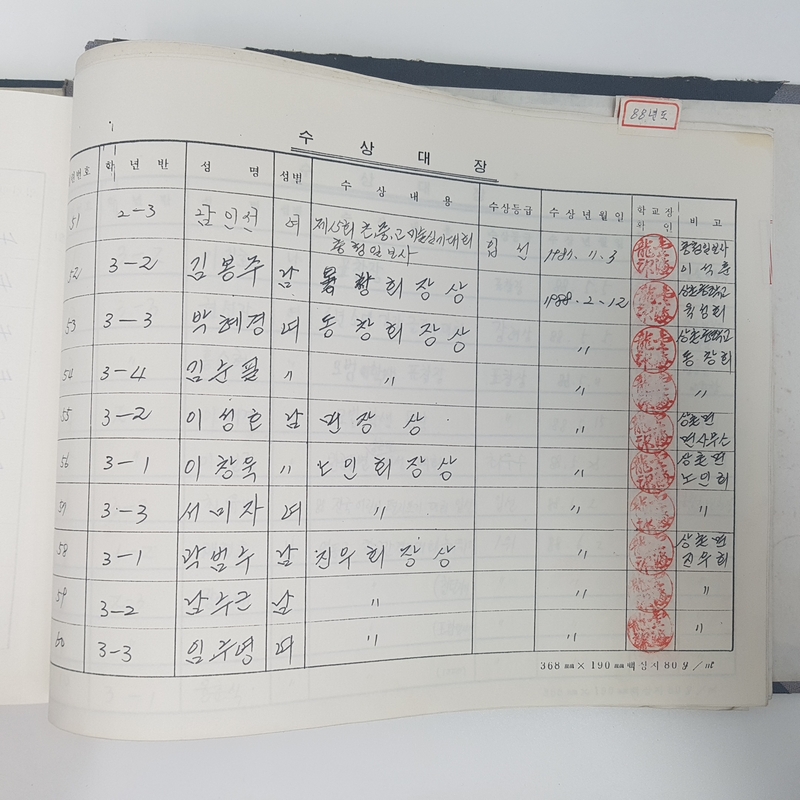 88년도
수 상 대 장
번호 학 년 반 성 명 성별 수 상 내 용 수상등급 수 상 년 월 일 학교장 확인 비 고
51 2-3 인선 여 제15회 초,중,고 미술실기대회 입선 1987. 11. 3 중청일보사
52 3-2 김봉주 남 회 장 상 1988. 2. 12
53 3-3 박혜경 여 동 창 회 장 상 〃 동창회
54 3-4 김순필 〃 〃 〃 〃
55 3-2 이성 남 면 장 상 〃 상촌면 면사무소
56 3-1 이창욱 〃 노 인 회 장 상 〃 상촌면 노인회
57 3-3 서미자 여 〃 〃 〃
58 3-1 곽범수 남 진 우 회 장 상 〃 상촌면 진우회
59 3-2 남수근 남 〃 〃 〃
60 3-3 임주영 여 〃 〃 〃
368㎜×190㎜ 백상지 80g/㎡